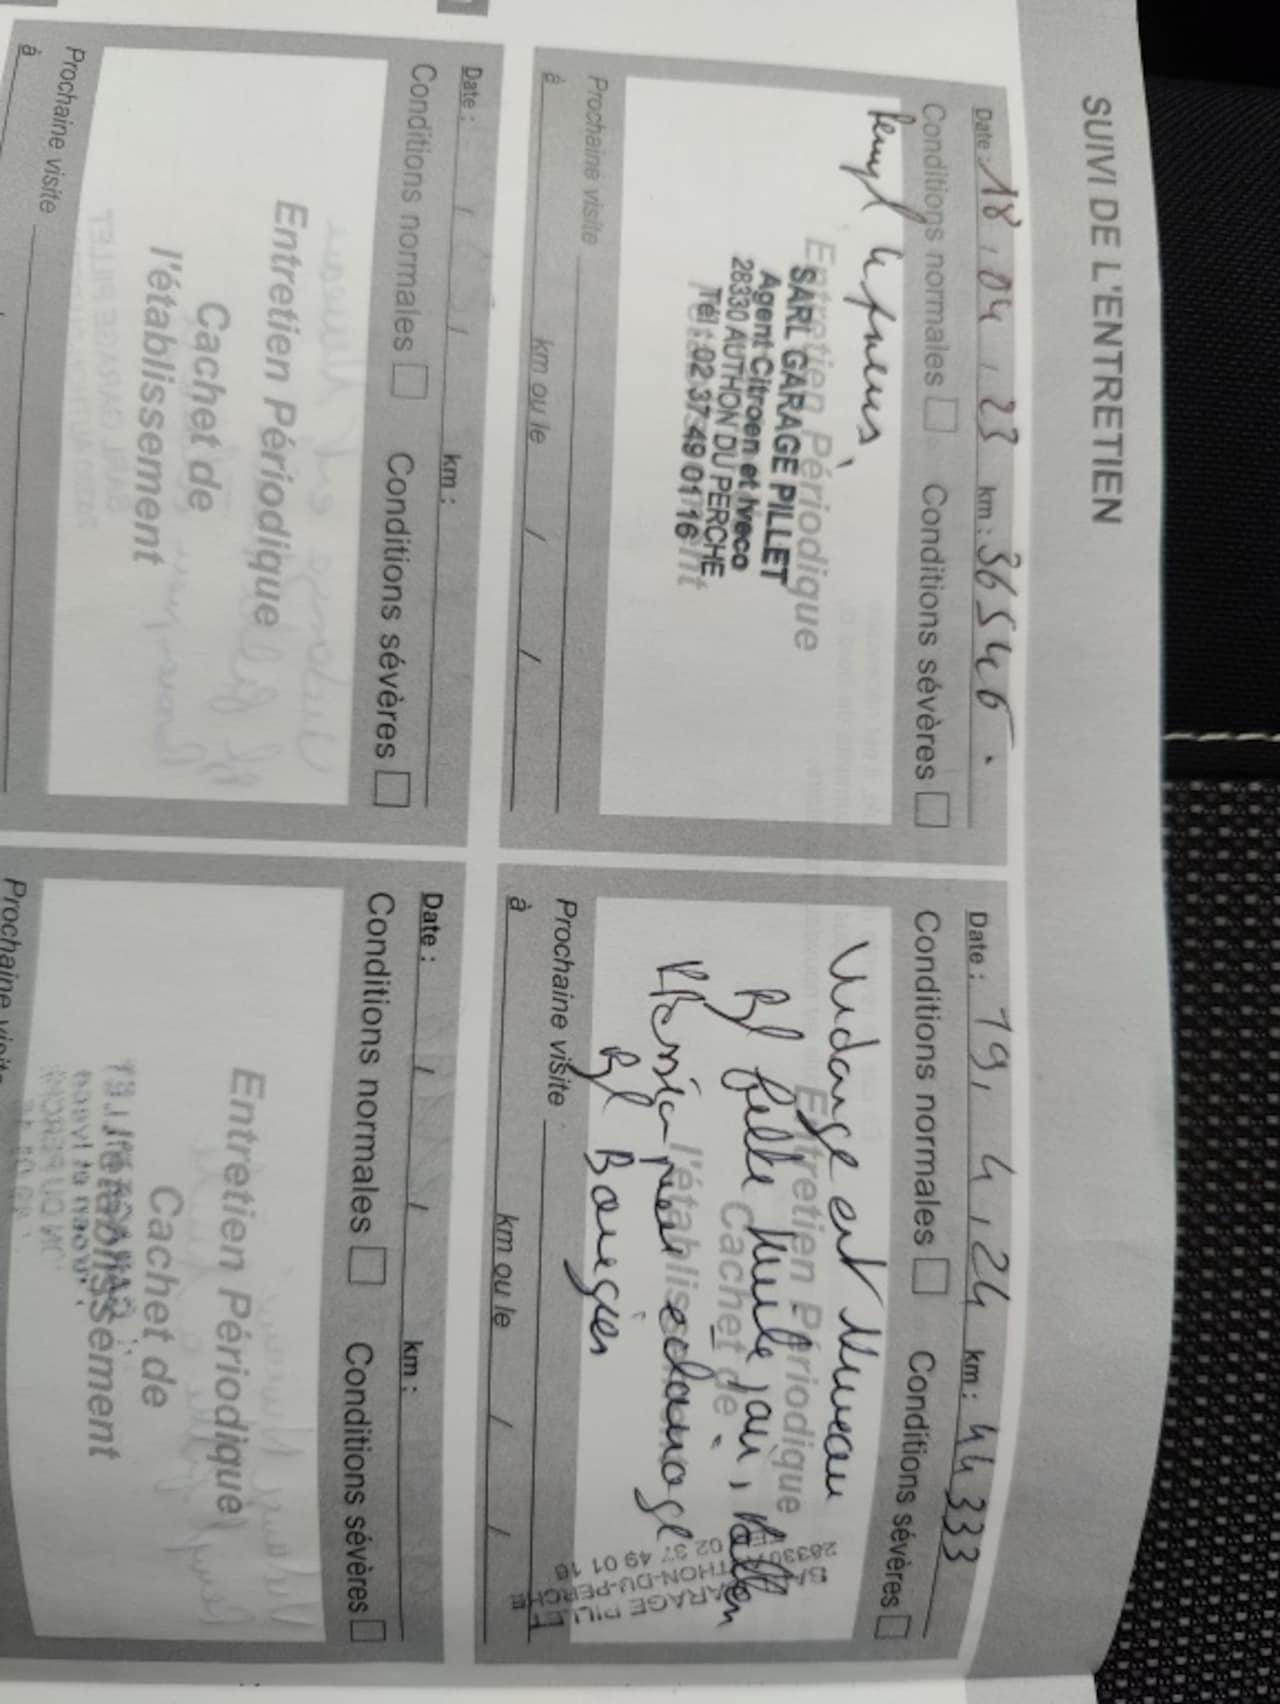 SUIVI DE L'ENTRETIEN
Date : 18 , 04 , 23 km : 36546 .
Conditions normales Conditions sévères
Entretien Périodique
SARL GARAGE PILLET
Agent Citroen et Iveco
28330 AUTHON DU PERCHE
Tél : 02 37 49 01 16
Prochaine visite
à km ou le / /
Date : 19 , 4 , 24 km : 44333
Conditions normales Conditions sévères
Vidange et Niveau
Entretien Périodique
Rpl filtre huile, air,
Cachet de
l'établissement
Rpl Bougies
28330 AUTHON-DU-PERCHE
GARAGE PILLET
02 37 49 01 16
Prochaine visite
à km ou le / /
Date : / / km :
Conditions normales Conditions sévères
Entretien Périodique
Cachet de
l'établissement
Prochaine visite
à
Date : / / km :
Conditions normales Conditions sévères
Entretien Périodique
Cachet de
l'établissement
Prochaine visite